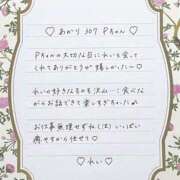 ♡ あかり 307 Pちゃん ♡
Pちゃんの大切な日にれいと会って
くれてありがとうが嬉しかった〜♡
れいの好きなものも沢山…食べな
がらお話できて楽しすぎちゃった
お仕事無理せずね(太)いっぱい
癒やすから任せて♡
♡ れい ♡